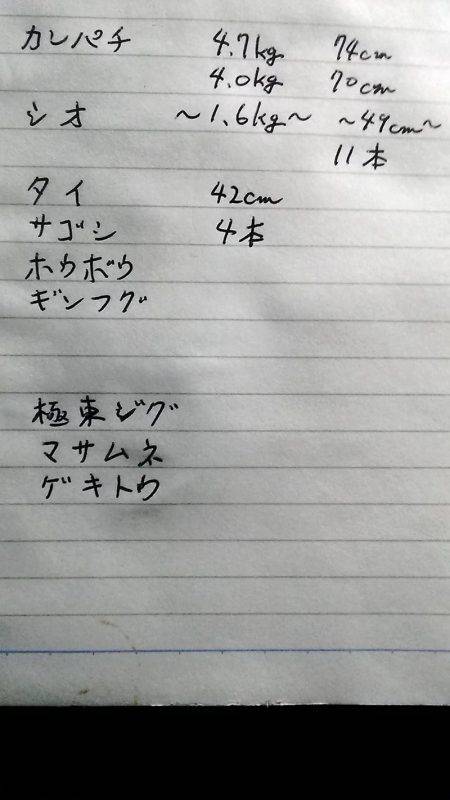 カンパチ 4.7kg 74cm
4.0kg 70cm
シオ ～1.6kg～ ～49cm～
11本
タイ 42cm
サゴシ 4本
ホウボウ
ギンフグ
極東ジグ
マサムネ
ゲキトウ